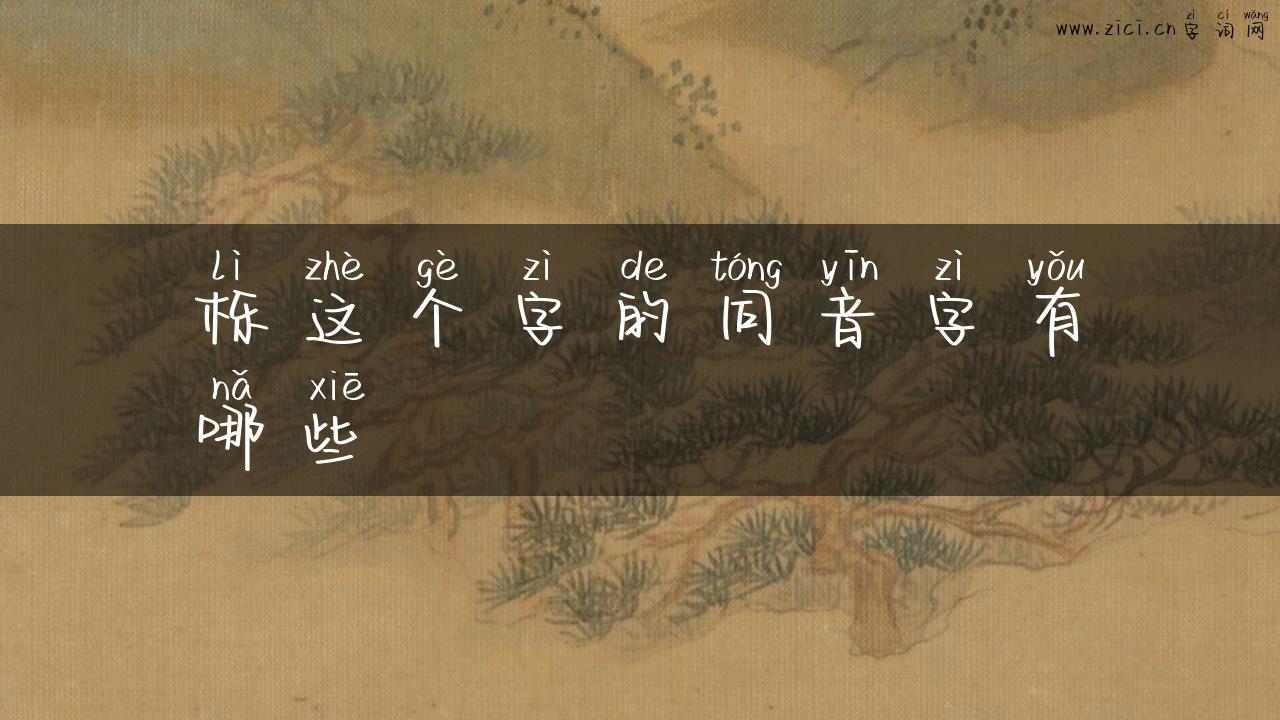 www.zīcī.cn 字词网
zì cí wǎng
lì zhè gè zì de tóng yīn zì yǒu
栎这个字的同音字有
nǎ xiē
哪些